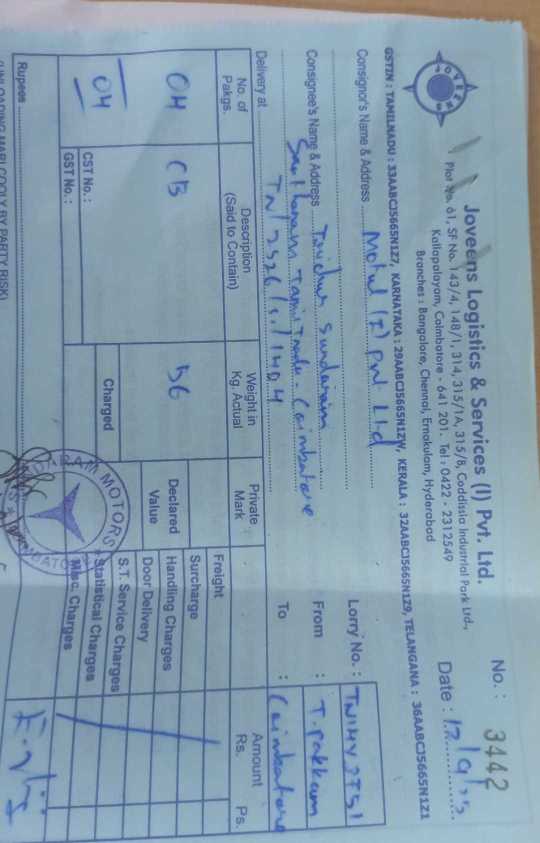 JOVEENS
Joveens Logistics & Services (I) Pvt. Ltd.
Plot No. 61, SF No. 143/4, 148/1, 314, 315/1A, 315/B, Coddissia Industrial Park Ltd.,
Kallapalayam, Coimbatore - 641 201. Tel : 0422 - 2312549
Branches : Bangalore, Chennai, Ernakulam, Hyderabad
No. : 3442
Date :
GSTIN : TAMILNADU : 33AABCJ5665N1Z7, KARNATAKA : 29AABCJ5665N1ZW, KERALA : 32AABCJ5665N1Z9, TELANGANA : 36AABCJ5665N1Z1
Consignor's Name & Address Motul (I) Pvt Ltd
Lorry No. :
Consignee's Name & Address Sundaram
Tamil Nadu - Coimbatore
From : T. Pakkam
Delivery at TN/2526/S1/1404
To : Coimbatore
No. of Pakgs.
Description (Said to Contain)
Weight in Kg. Actual
Private Mark
Amount
Rs. Ps.
04 CB 56
Freight
Surcharge
Declared Value
Handling Charges
Door Delivery
Charged
S.T. Service Charges
04
CST No. :
Statistical Charges
GST No. :
Misc. Charges
SUNDARAM MOTORS
COIMBATORE
Rupees
(UNLOADING MARI COOLY BY PARTY RISK)